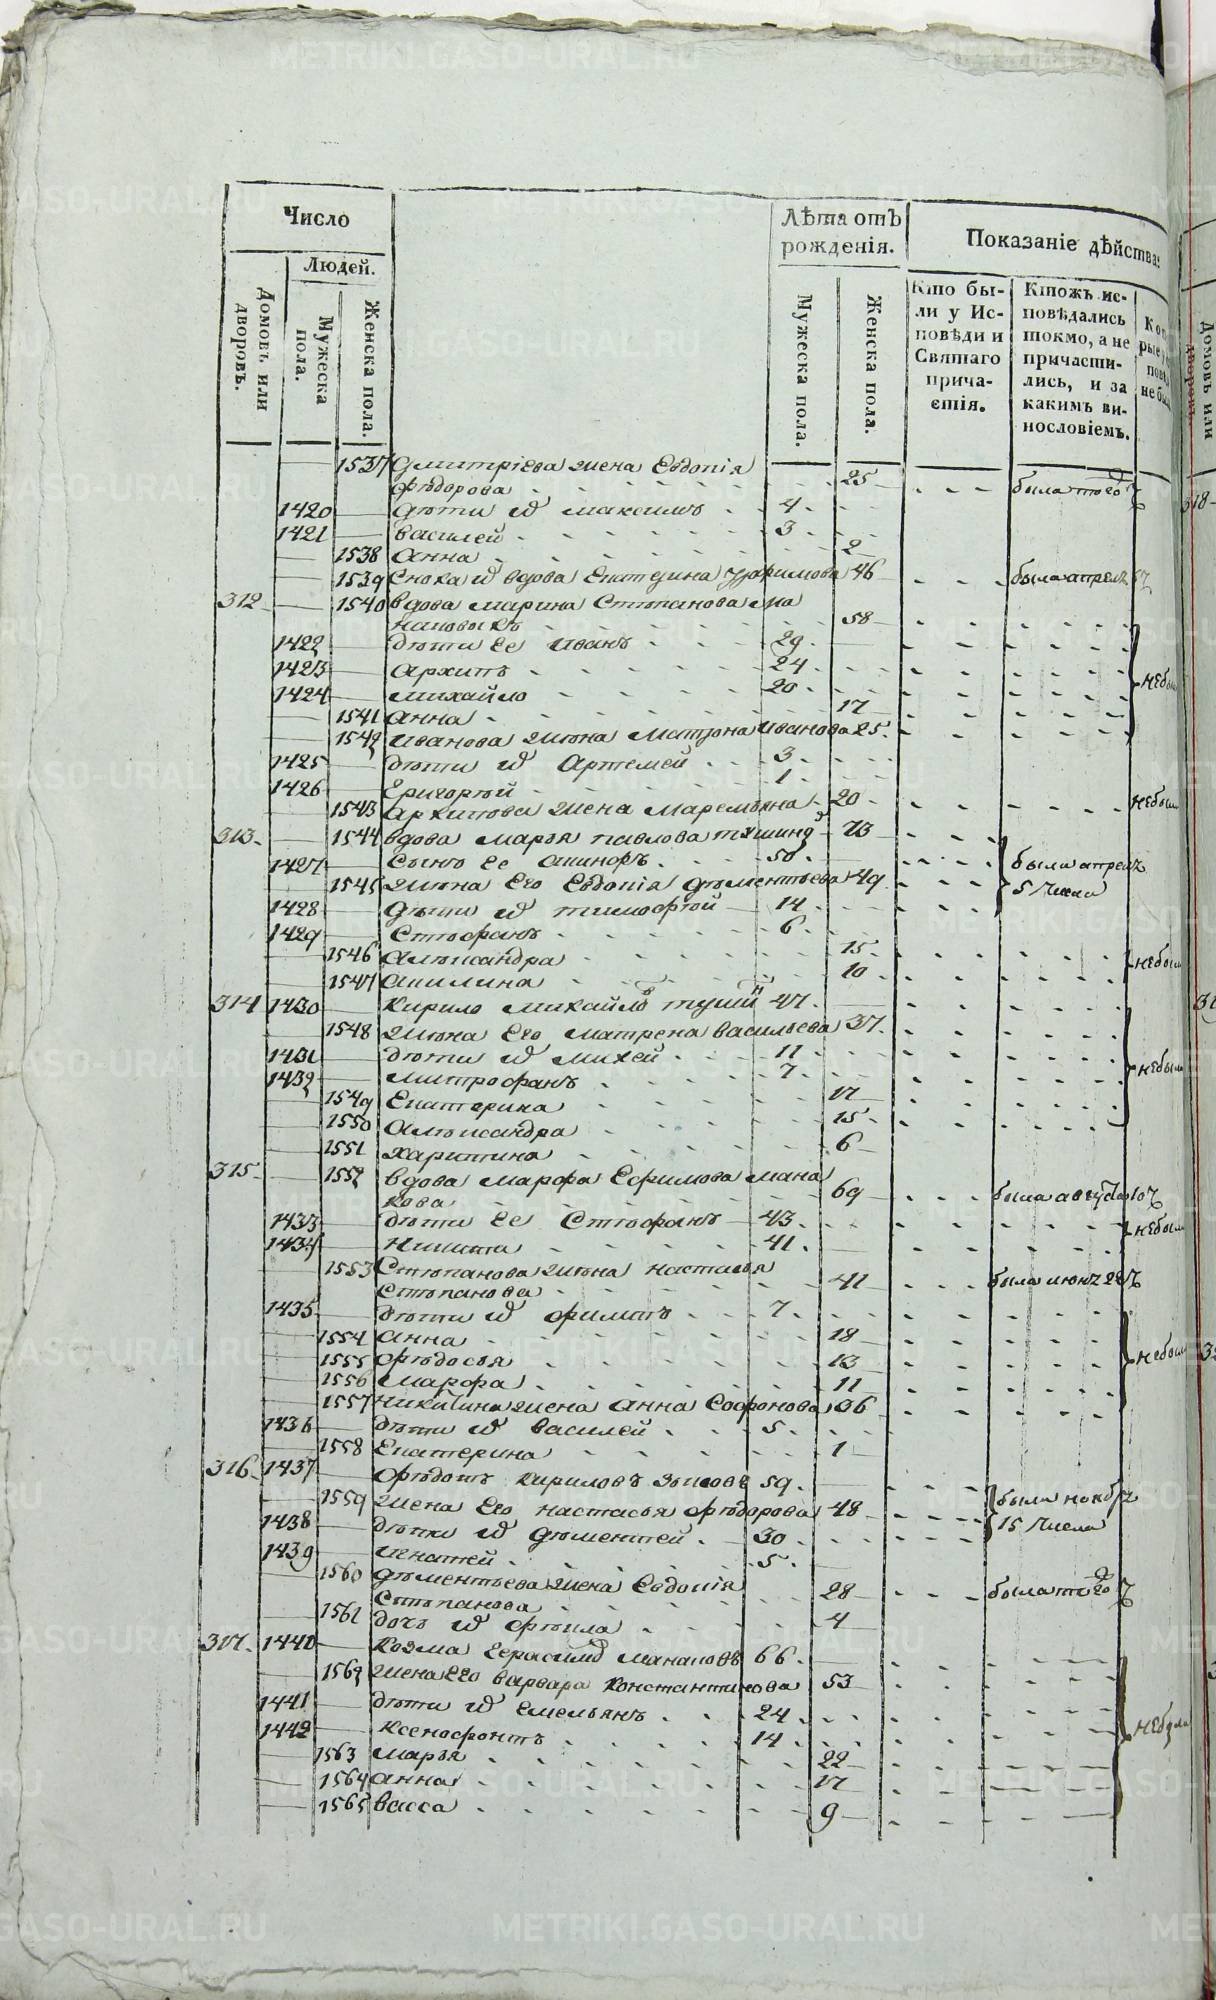 Число
Людей.
Домовъ или дворовъ.
Мужеска пола.
Женска пола.
Лѣта отъ рожденія.
Мужеска пола.
Женска пола.
Показаніе дѣйства:
Кто бы-
ли у Ис-
повѣди и
Святаго
прича-
стія.
Ктожъ ис-
повѣдались
токмо, а не
причасти-
лись, и за
какимъ ви-
нословіемъ.
1537 Дмитріева жена Евдокія
Ѳедорова 25 была того ч
1420 дѣти ихъ Максимъ 4
1421 василей 3
1538 Анна 2
1539 Сноха их вдова Екатерина 46 была апреля
312 1540 вдова Марина Степанова Ма
наковыхъ 58
1422 дѣти Ее Иванъ 29
1423 Архипъ 24
1424 Михайло 20 небыли
1541 Анна 17
1542 Иванова жена Матрона Иванова 25
1425 дѣти их Артемей 3
1426 Григорей 1
1543 Архипова жена Маремьяна 20 небыли
313 1544 вдова Марья павлова 73
1427 Сынъ Ее 50 были апреля
1545 жена Его Евдокія Дементьева 49 5 Числа
1428 Дѣти их тимофей 14
1429 Стефанъ 6
1546 Александра 15 небыли
1547 Акилина 10
314 1430 Кирило Михайловъ 47
1548 жена Его матрена васильева 37
1431 дѣти их михей 11
1432 митрофанъ 7 небыли
1549 Екатерина 17
1550 Александра 15
1551 Харитина 6
315 1552 вдова Марфа Ефимова Мана
кова 69 была августа 10 ч
1433 дѣти Ее Стефанъ 43 небыли
1434 Никита 41
1553 Степанова жена настасья
Степанова 41 была июня 28 ч
1435 дѣти их Филатъ 7
1554 Анна 18
1555 Ѳедосья 13 небыли
1556 Марфа 11
1557 Никитина жена Анна Софонова 36
1436 дѣти их василей 5
1558 Екатерина 1
316 1437 Ѳедотъ Кириловъ Зыковъ 59 были ноября
1559 жена Его настасья Ѳедорова 48 15 Числа
1438 дѣти их Дементей 30
1439 игнатей 5
1560 Дементьева жена Евдокія
Степанова 28 была того ч
1561 дочь их Ѳекла 4
317 1440 Козма Герасимов Манаковъ 66
1562 жена Его варвара Константинова 53
1441 дѣти их Емельянъ 24
1442 Ксенофонтъ 14 небыли
1563 Марья 22
1564 Анна 17
1565 васса 9
318
Домовъ или
METRIKI.GASO-URAL.RU